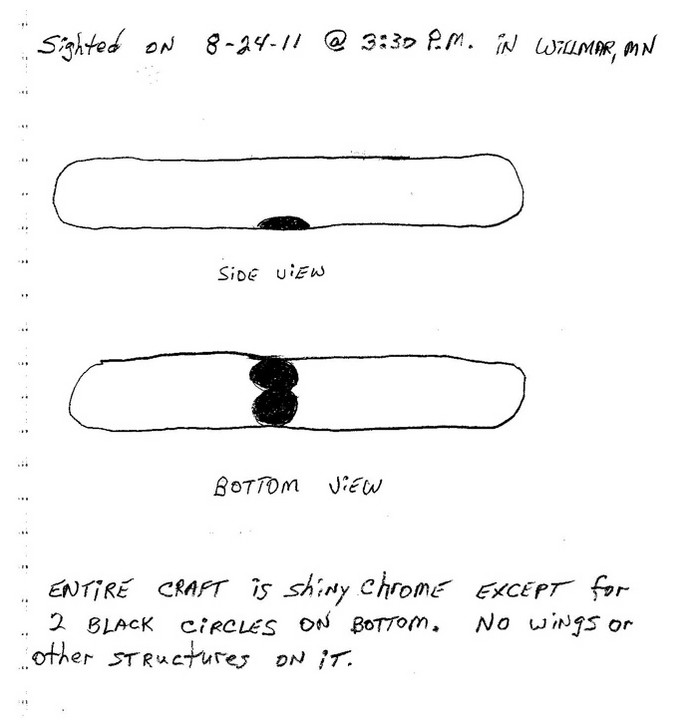 Sighted ON 8-24-11 @ 3:30 P.M. iN WiLLMAR, MN
SiDE ViEW
BOTTOM ViEW
ENTiRE CRAFT is shiNy ChromE EXCEPT for
2 BLACK CiRCLES ON BOTTOM. No wiNgs or
other STRuctures ON iT.